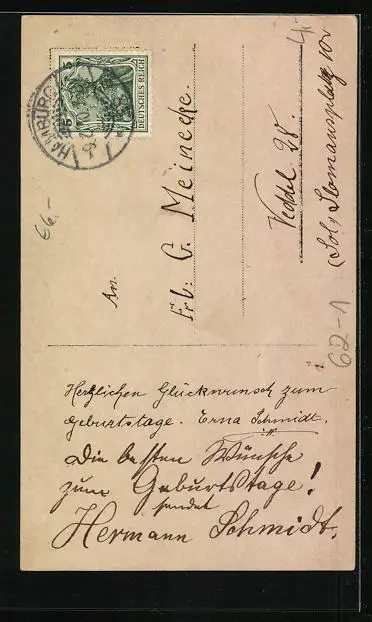 5
DEUTSCHES REICH
HAMBURG
An.
Frl. G. Meinecke.
Veddel 28.
4,-
66.-
62-1
Herzlichen Glückwunsch zum
Geburtstage. Erna Schmidt.
Die besten Wünsche
zum Geburtstage!
sendet
Hermann Schmidt.